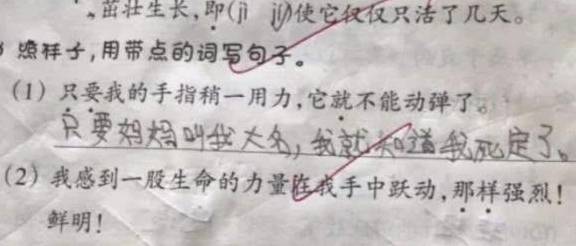 茁壮生长,即(jì jí)使它仅仅只活了几天。
照样子,用带点的词写句子。
(1) 只要我的手指稍一用力,它就不能动弹了。
只要妈妈叫我大名,我就知道我死定了。
(2) 我感到一股生命的力量在我手中跃动,那样强烈!
鲜明!